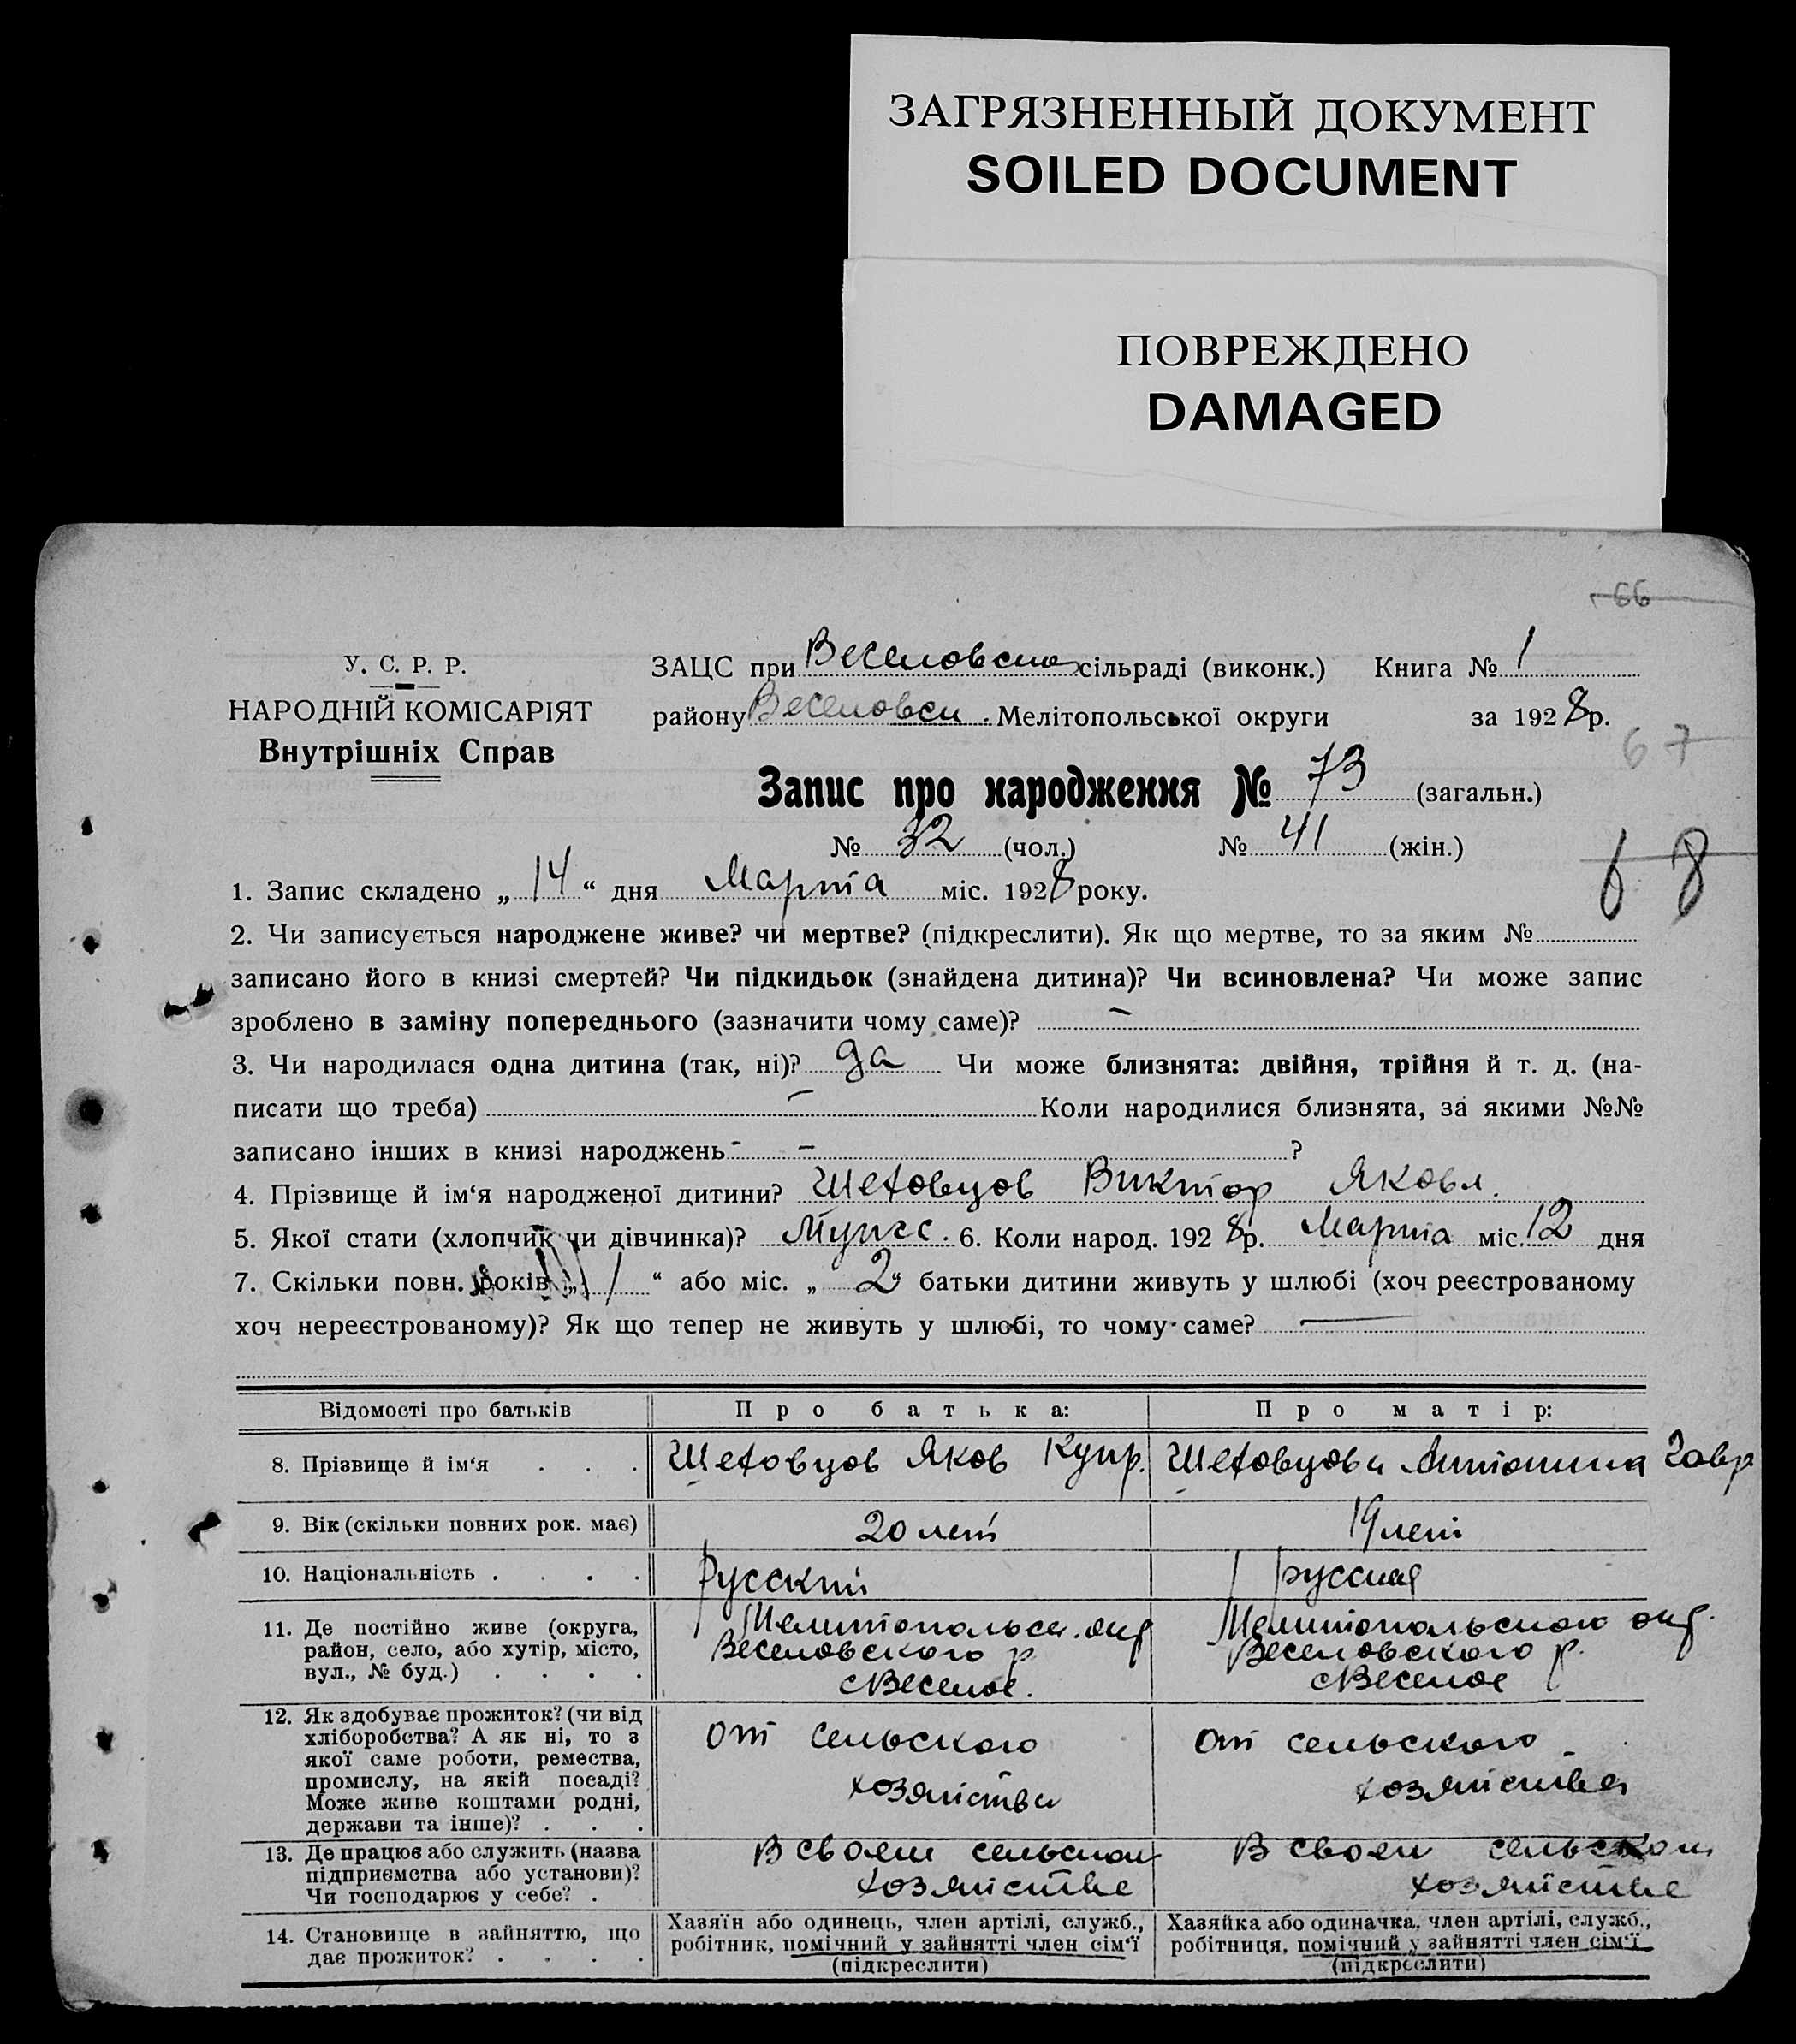 ЗАГРЯЗНЕННЫЙ ДОКУМЕНТ
SOILED DOCUMENT
ПОВРЕЖДЕНО
DAMAGED
66
У. С. Р. Р.
НАРОДНІЙ КОМІСАРІЯТ
Внутрішніх Справ
ЗАЦС при Веселовском сільраді (виконк.) Книга № 1
району Веселовск. Мелітопольської округи за 1928 р.
67
Запис про народження № 73 (загальн.)
№ 32 (чол.) № 41 (жін.)
68
1. Запис складено „14“ дня Марта міс. 1928 року.
2. Чи записується народжене живе? чи мертве? (підкреслити). Як що мертве, то за яким №
записано його в книзі смертей? Чи підкидьок (знайдена дитина)? Чи всиновлена? Чи може запис
зроблено в заміну попереднього (зазначити чому саме)? —
3. Чи народилася одна дитина (так, ні)? да Чи може близнята: двійня, трійня й т. д. (на-
писати що треба) — Коли народилися близнята, за якими №№
записано інших в книзі народжень - — ?
4. Прізвище й ім‘я народженої дитини? Шеховцов Виктор Яковл.
5. Якої стати (хлопчик чи дівчинка)? Мужс. 6. Коли народ. 1928 р. Марта міс. 12 дня
7. Скільки повн. років „1“ або міс. „2“ батьки дитини живуть у шлюбі (хоч реєстрованому
хоч нереєстрованому)? Як що тепер не живуть у шлюбі, то чому саме? —
Відомості про батьків Про батька: Про матір:
8. Прізвище й ім‘я . . . Шеховцов Яков Купр. Шеховцова Антонина Гавр
9. Вік (скільки повних рок. має) 20 лет 19 лет
10. Національність . . . . Русский русская
11. Де постійно живе (округа,
район, село, або хутір, місто,
вул., № буд.) . . . .
Мелитопольск. окр
Веселовского р
с Веселое.
Мелитопольского окр.
Веселовского р.
с Веселое
12. Як здобуває прожиток? (чи від
хліборобства? А як ні, то з
якої саме роботи, ремества,
промислу, на якій посаді?
Може живе коштами родні,
держави та інше)? . . .
от сельского
хозяйства
от сельского
хозяйства
13. Де працює або служить (назва
підприємства або установи)?
Чи господарює у себе? .
В своем сельском
хозяйстве
В своем сельском
хозяйстве
14. Становище в зайняттю, що
дає прожиток? . . . .
Хазяїн або одинець, член артілі, служб.,
робітник, помічний у зайнятті член сім‘ї
(підкреслити)
Хазяйка або одиначка, член артілі, служб.,
робітниця, помічний у зайнятті член сім‘ї
(підкреслити)